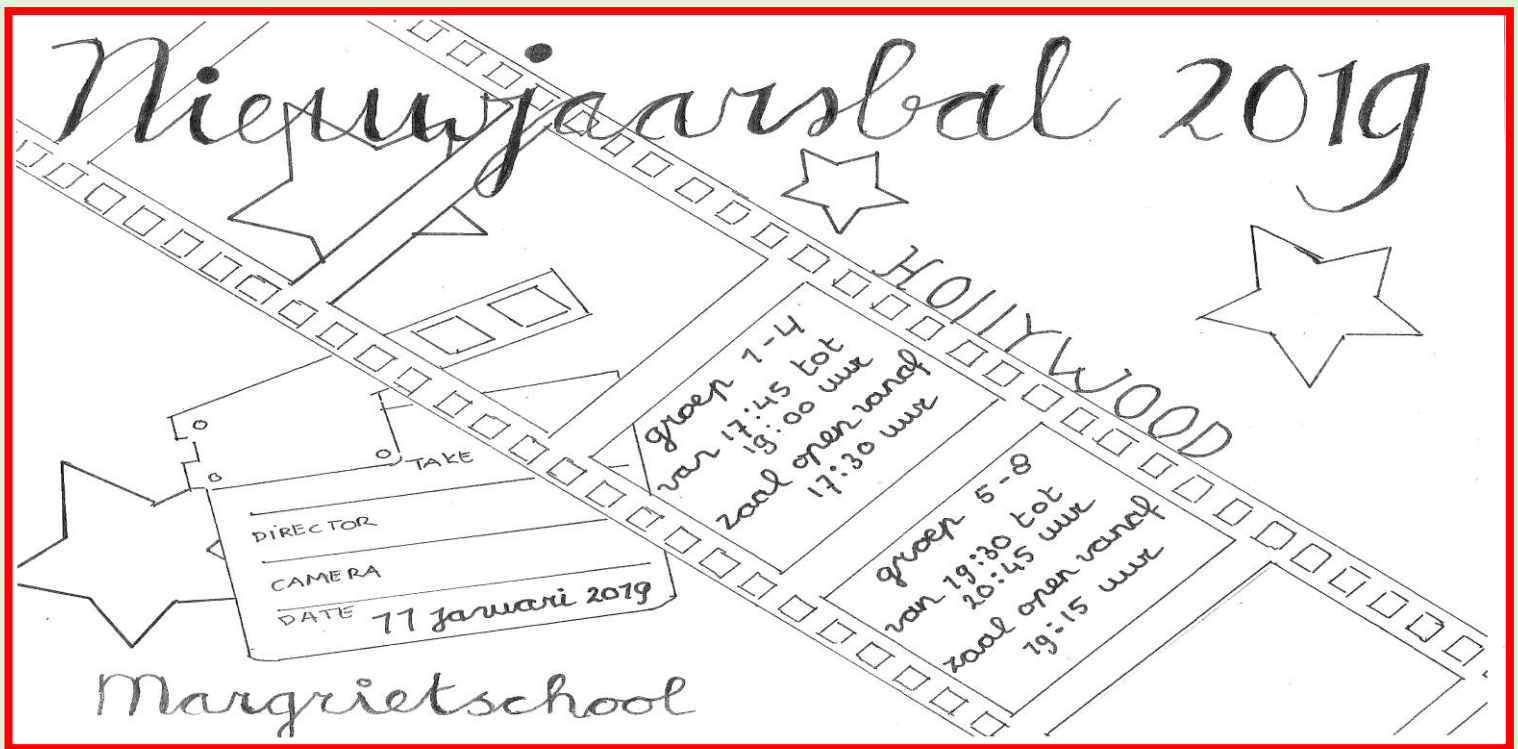 Nieuwjaarsbal 2019
HOllYWOOD
groep 1-4
van 17:45 tot
19:00 uur
zaal open vanaf
17:30 uur
groep 5-8
van 19:30 tot
20:45 uur
zaal open vanaf
19:15 uur
TAKE
DIRECTOR
CAMERA
DATE 11 Januari 2019
Margrietschool